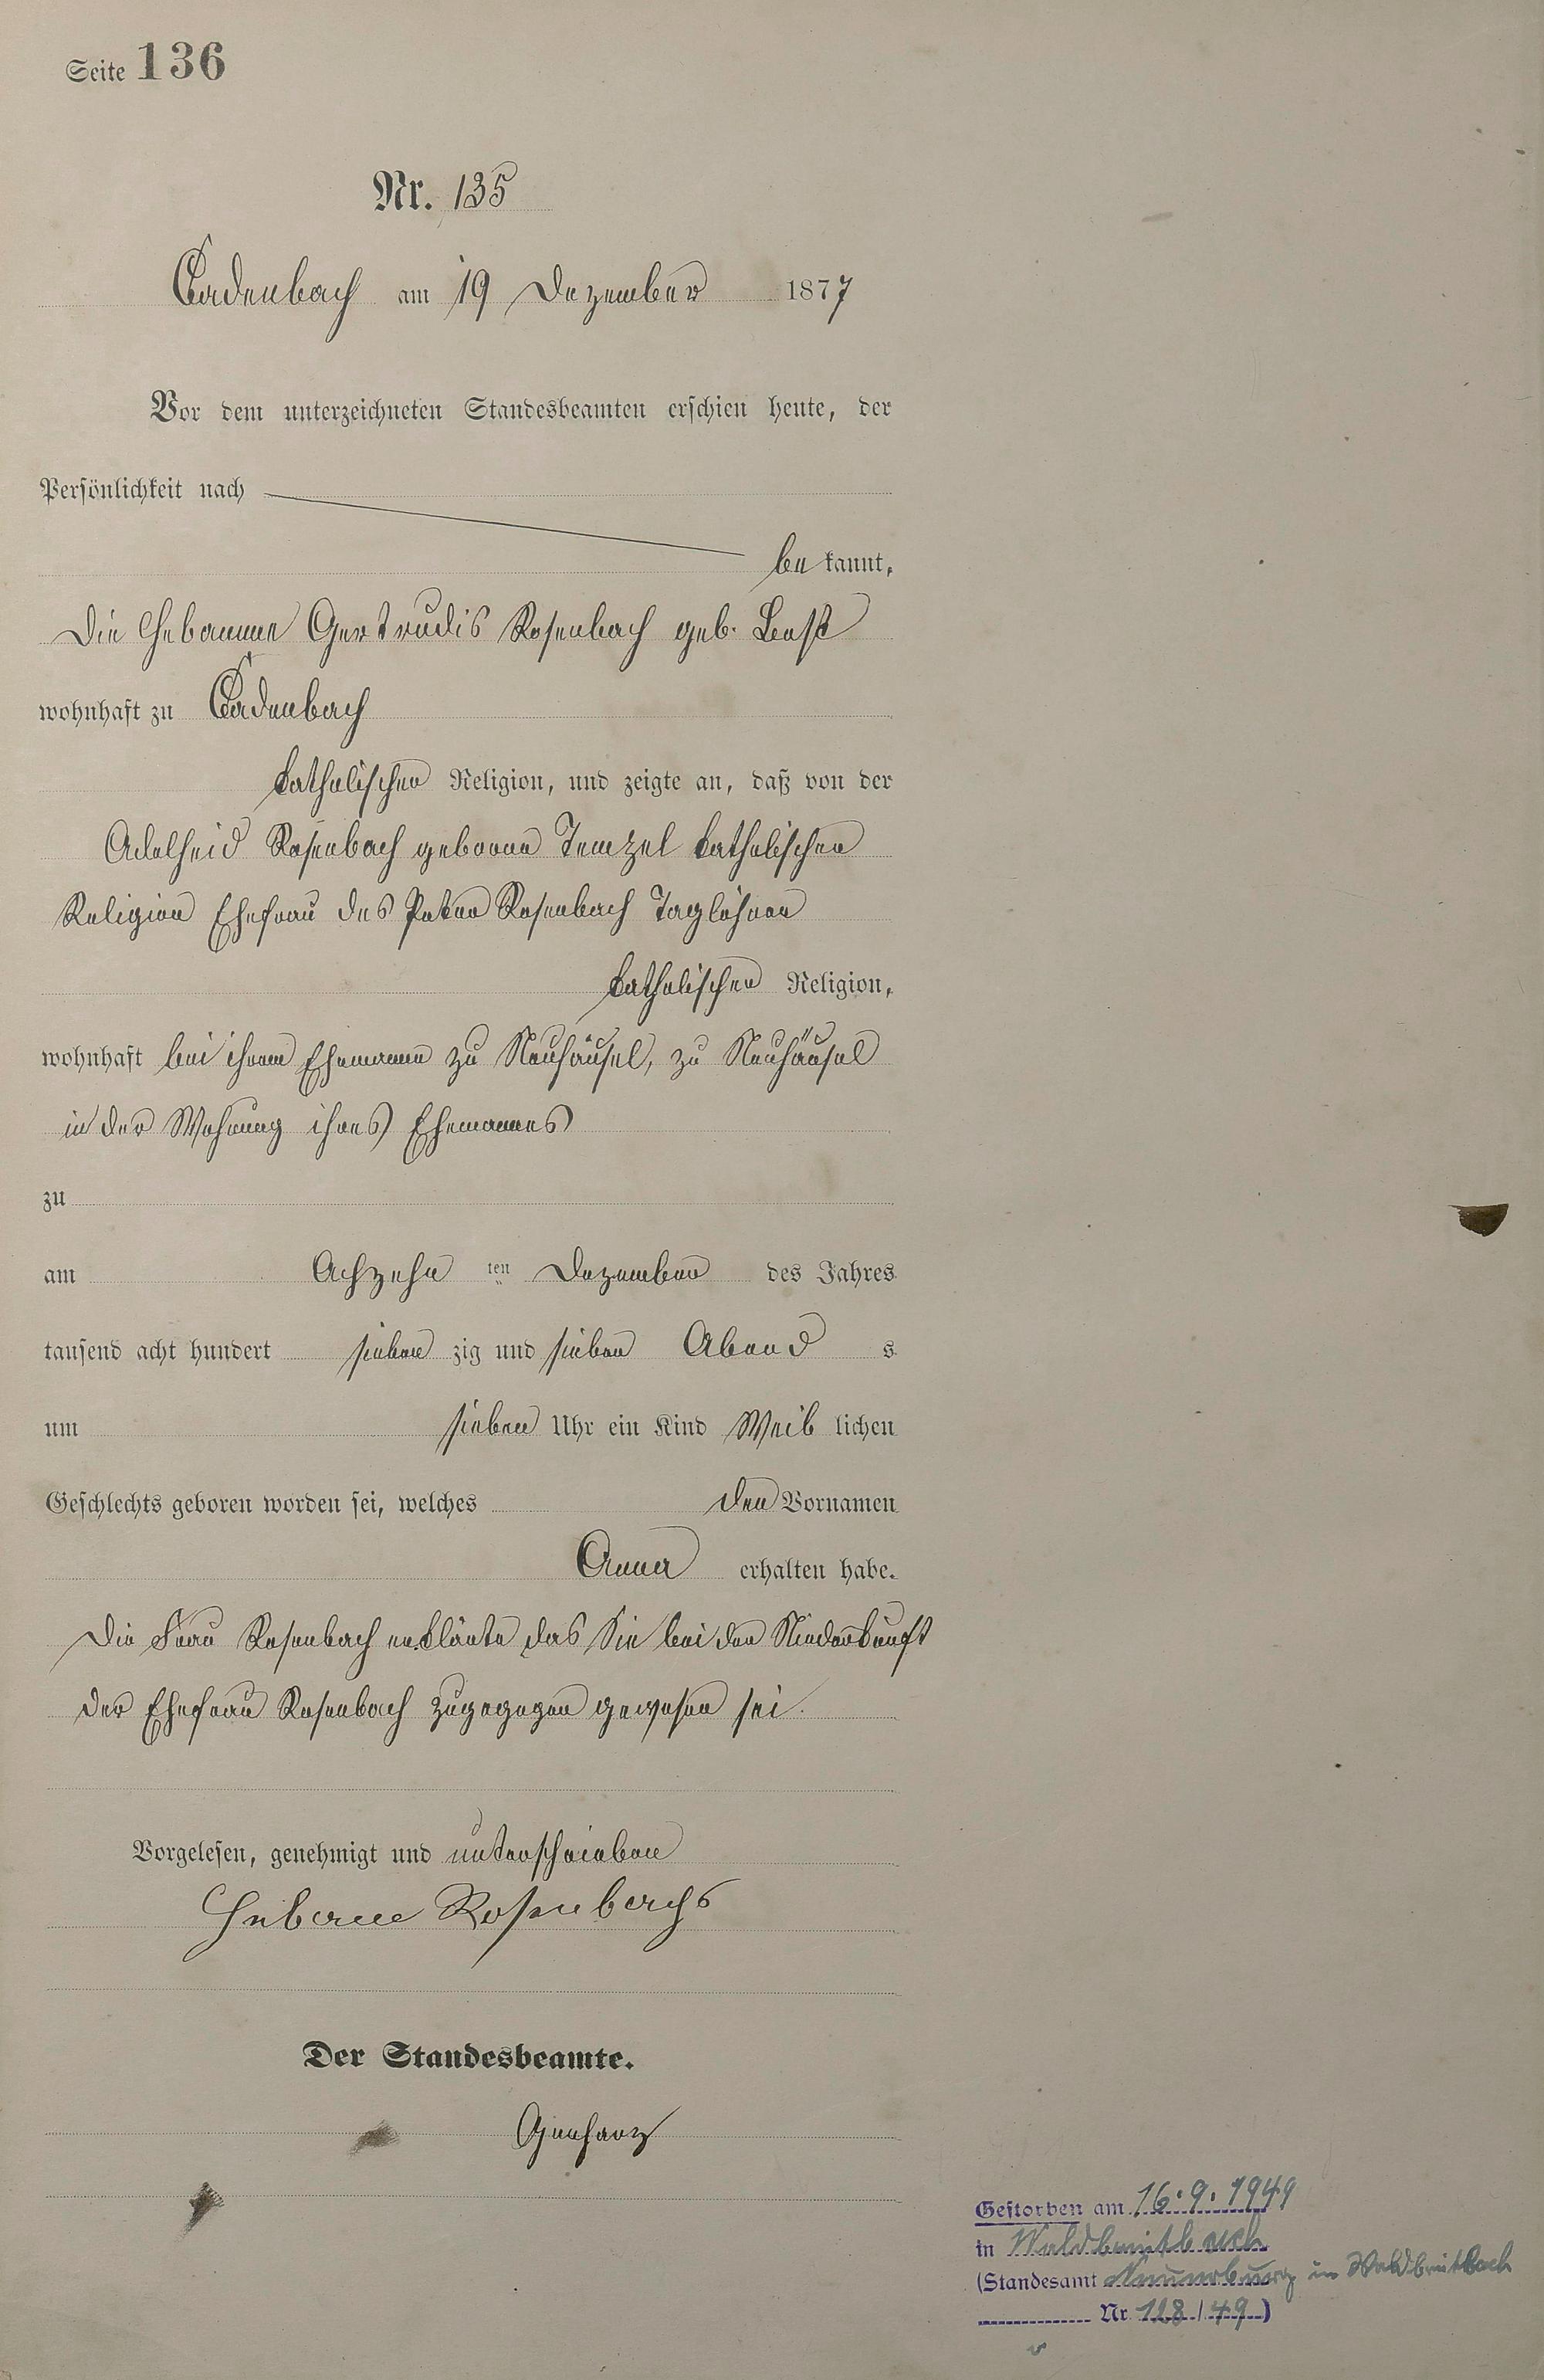 Seite 136
Nr. 135
Cadenbach am 19 Dezember 1877
Vor dem unterzeichneten Standesbeamten erschien heute, der
Persönlichkeit nach
be kannt,
Die Hebamme Gertrudis Rosenbach geb. Best
wohnhaft zu Cadenbach
katholischer Religion, und zeigte an, daß von der
Adelheid Rosenbach geborne katholischer
Religion Ehefrau des Peter Rosenbach Taglöhner
katholischer Religion,
wohnhaft bei ihrem Ehemanne zu Neuhäusel, zu Neuhäusel
in der Wohnung ihres Ehemannes
zu
am Achzehn ten Dezember des Jahres
tausend acht hundert sieben zig und sieben Abend s
um sieben Uhr ein Kind Weib lichen
Geschlechts geboren worden sei, welches den Vornamen
Anna erhalten habe.
Die Frau Rosenbach erklärte das Sie bei der Niederkunft
der Ehefrau Rosenbach zugegegen gewesen sei.
Vorgelesen, genehmigt und unterschrieben
Rosenbach
Der Standesbeamte.
Gestorben am 16.9.1949
in Waldbreitbach
(Standesamt Neuerburg in Waldbreitbach
Nr. 128/49)